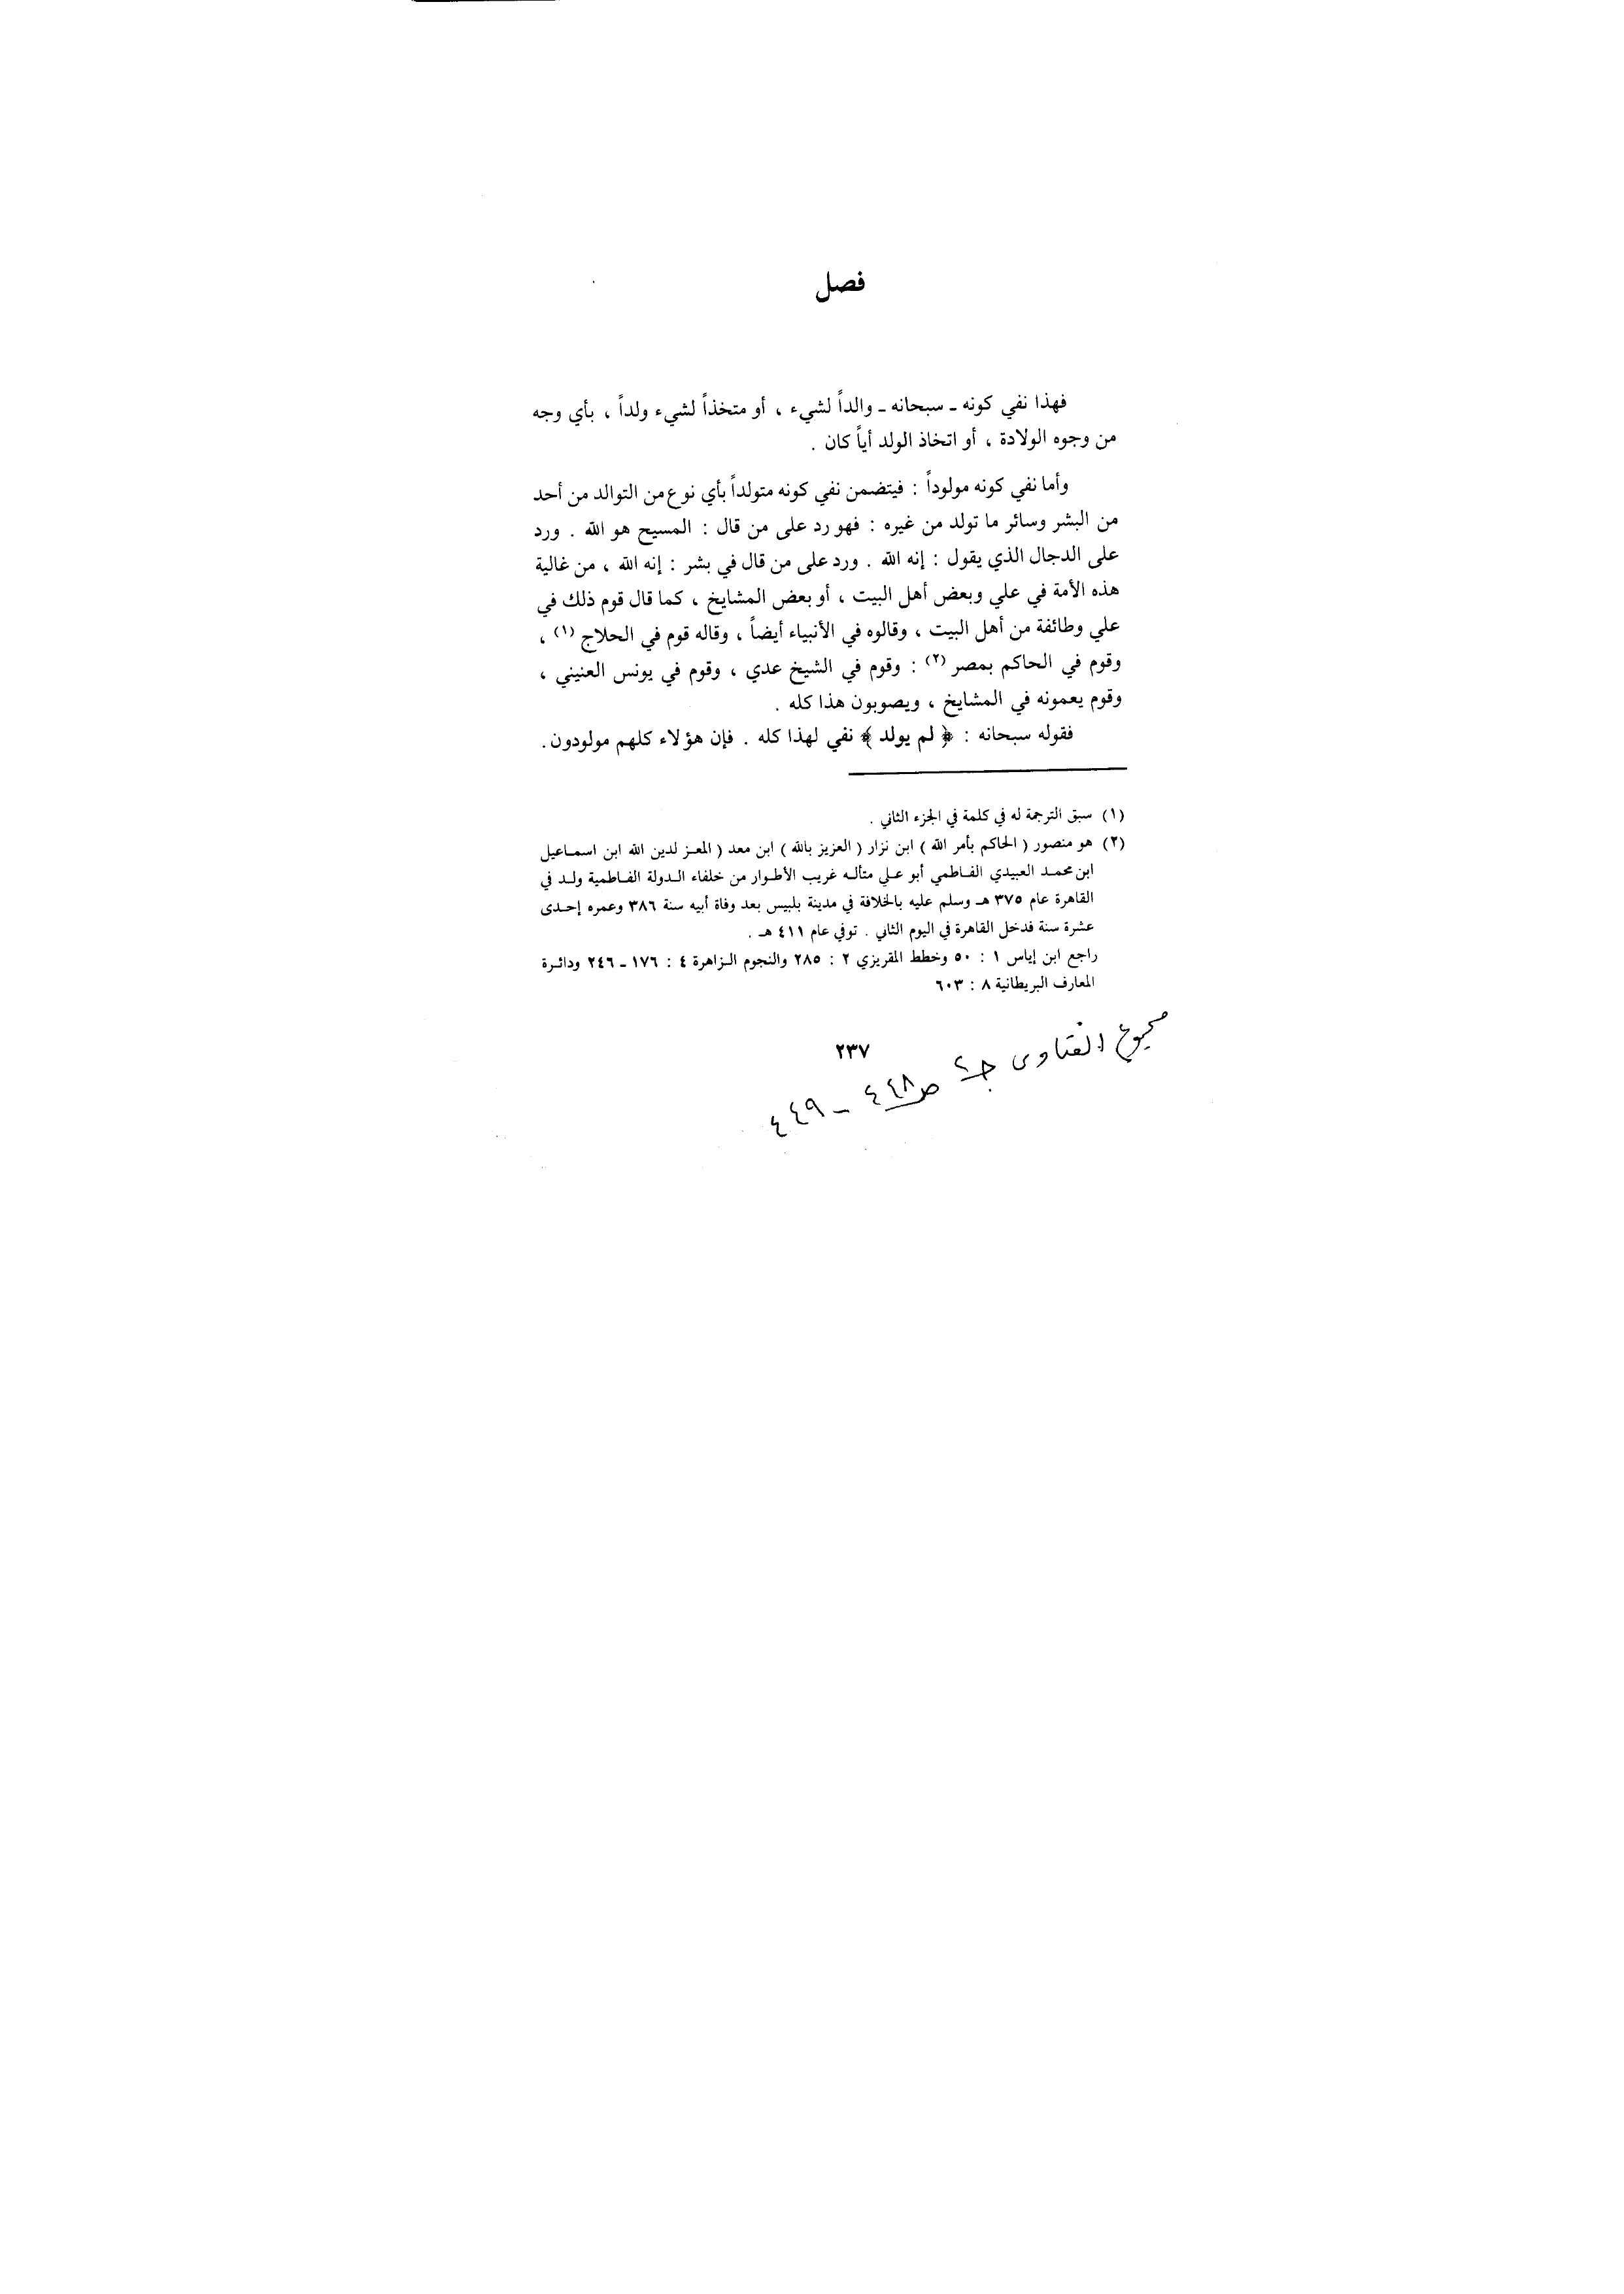 فصل
فهذا نفي كونه ـ سبحانه ـ والداً لشيء ، أو متخذاً لشيء ولداً ، بأي وجه
من وجوه الولادة ، أو اتخاذ الولد أياً كان .
وأما نفي كونه مولوداً : فيتضمن نفي كونه متولداً بأي نوع من التوالد من أحد
من البشر وسائر ما تولد من غيره : فهو رد على من قال : المسيح هو الله . ورد
على الدجال الذي يقول : إنه الله . ورد على من قال في بشر : إنه الله ، من غالية
هذه الأمة في علي وبعض أهل البيت ، أو بعض المشايخ ، كما قال قوم ذلك في
علي وطائفة من أهل البيت ، وقالوه في الأنبياء أيضاً ، وقاله قوم في الحلاج (١) ،
وقوم في الحاكم بمصر (٢) : وقوم في الشيخ عدي ، وقوم في يونس العنيني ،
وقوم يعمونه في المشايخ ، ويصوبون هذا كله .
فقوله سبحانه : ﴿ لم يولد ﴾ نفي لهذا كله . فإن هؤلاء كلهم مولودون .
(١) سبق الترجمة له في كلمة في الجزء الثاني .
(٢) هو منصور ( الحاكم بأمر الله ) ابن نزار ( العزيز بالله ) ابن معد ( المعز لدين الله ابن اسماعيل
ابن محمد العبيدي الفاطمي أبو علي متأله غريب الأطوار من خلفاء الدولة الفاطمية ولد في
القاهرة عام ٣٧٥ هـ وسلم عليه بالخلافة في مدينة بلبيس بعد وفاة أبيه سنة ٣٨٦ وعمره إحدى
عشرة سنة فدخل القاهرة في اليوم الثاني . توفي عام ٤١١ هـ .
راجع ابن إياس ١ : ٥٠ وخطط المقريزي ٢ : ٢٨٥ والنجوم الزاهرة ٤ : ١٧٦ ـ ٢٤٦ ودائرة
المعارف البريطانية ٨ : ٦٠٣
٢٣٧
مجموع الفتاوى ج٢ ص ٤٤٨ - ٤٤٩